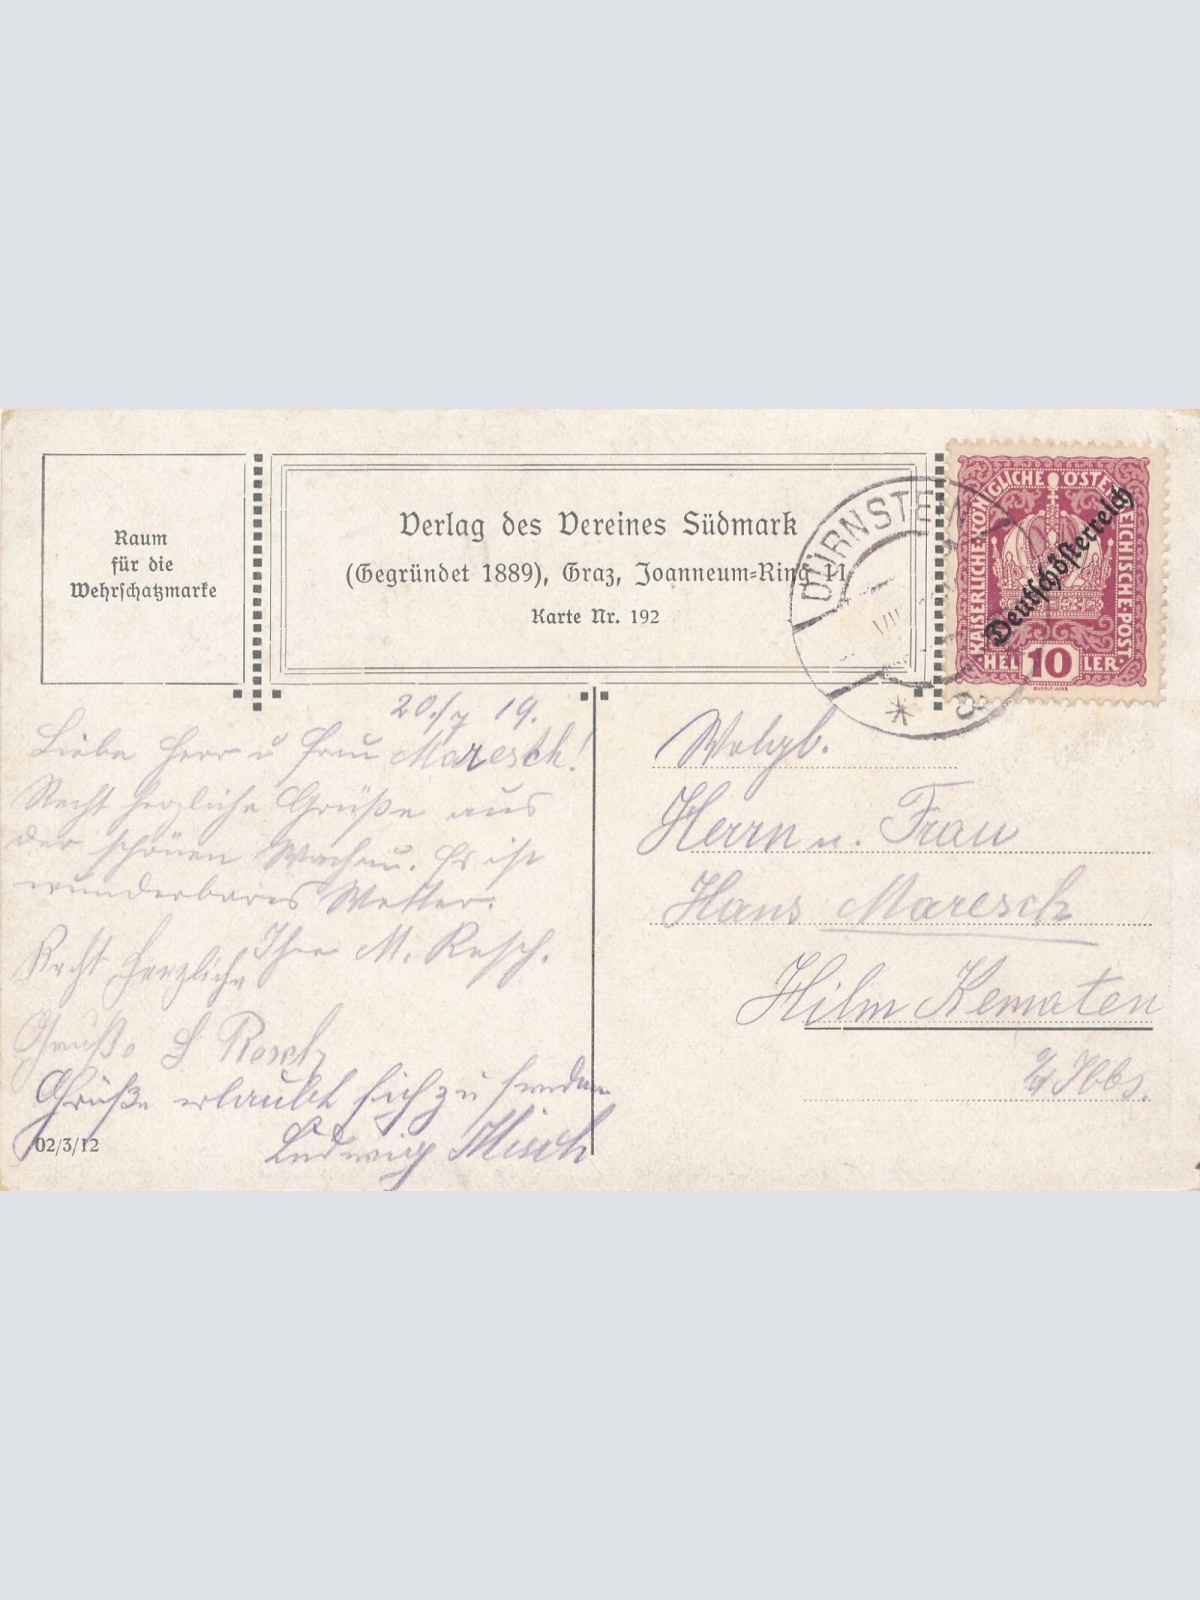 Raum
für die
Wehrschatzmarke
Verlag des Vereines Südmark
(Gegründet 1889), Graz, Joanneum-Ring 11
Karte Nr. 192
DÜRNSTEIN
VIII
* 3
KAISERLICHE KÖNIGLICHE ÖSTERREICHISCHE POST
Deutschösterreich
HEL 10 LER
20./7 19.
Liebe Herr u Frau Maresch!
Recht herzliche Grüße aus
der schönen Wachau. Es ist
wunderbares Wetter.
Ihre M. Resch.
Recht herzliche
Grüße
Grüße erlaubt sich zu senden
Ludwig Misch
02/3/12
Wohlgb.
Herrn u. Frau
Hans Maresch
Hilm Kematen
a/d Ibbs.